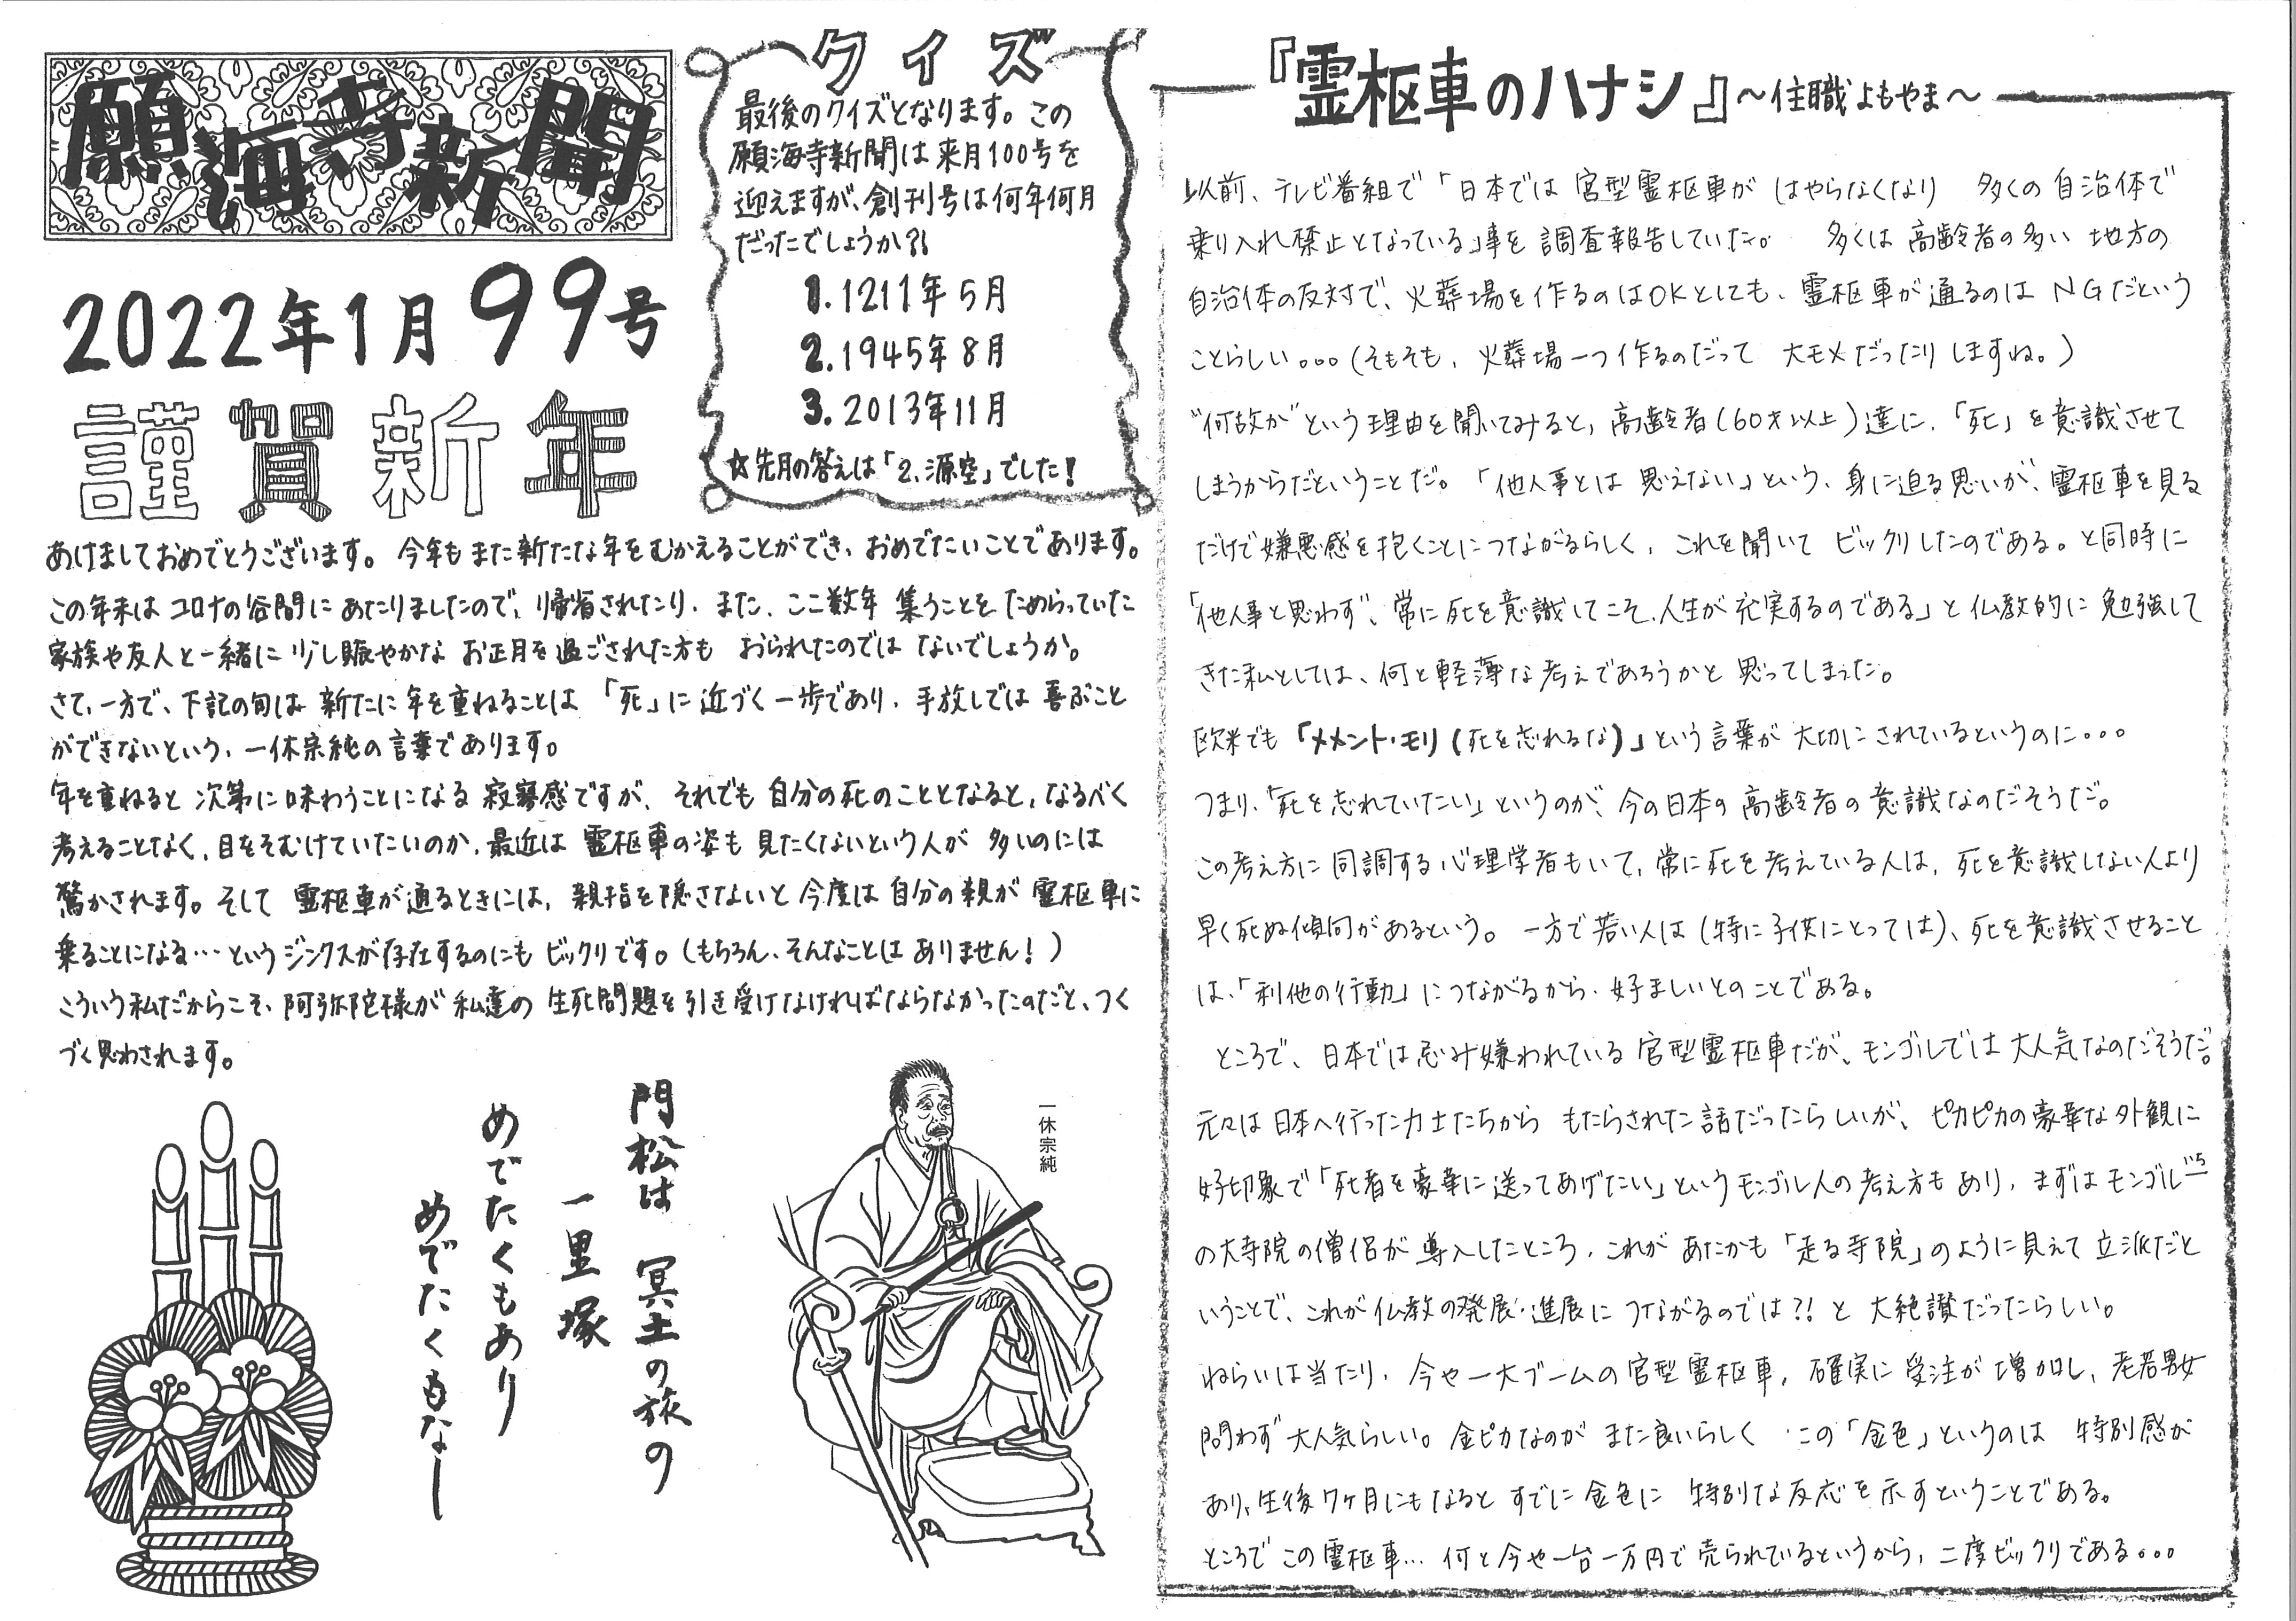 願海寺新聞
2022年1月 99号
謹賀新年
クイズ
最後のクイズとなります。この
願海寺新聞は来月100号を
迎えますが、創刊号は何年何月
だったでしょうか?!
1.1211年5月
2.1945年8月
3.2013年11月
☆先月の答えは「2.源空」でした!
あけましておめでとうございます。今年もまた新たな年をむかえることができ、おめでたいことであります。
この年末はコロナの谷間にあたりましたので、帰省されたり、また、ここ数年 集うことをためらっていた
家族や友人と一緒に少し賑やかな お正月を過ごされた方も おられたのでは ないでしょうか。
さて、一方で、下記の句は 新たに年を重ねることは 「死」に近づく一歩であり、手放しでは喜ぶこと
ができないという、一休宗純の言葉であります。
年を重ねると 次第に味わうことになる 寂寥感ですが、それでも自分の死のこととなると、なるべく
考えることなく、目をそむけていたいのか、最近は 霊柩車の姿も見たくないという人が 多いのには
驚かされます。そして 霊柩車が通るときには、親指を隠さないと今度は自分の親が霊柩車に
乗ることになる…というジンクスが存在するのにもビックリです。(もちろん、そんなことはありません!)
こういう私だからこそ、阿弥陀様が私達の 生死問題を引き受けなければならなかったのだと、つく
づく思わされます。
門松は 冥土の旅の
一里塚
めでたくもあり
めでたくもなし
一休宗純
『霊柩車のハナシ』～住職よもやま～
以前、テレビ番組で「日本では 宮型霊柩車が はやらなくなり 多くの自治体で
乗り入れ禁止となっている」事を調査報告していた。 多くは高齢者の多い 地方の
自治体の反対で、火葬場を作るのはOKとしても、霊柩車が通るのは NGだという
ことらしい。。。(そもそも、火葬場一つ作るのだって 大モメだったりしますね。)
"何故か"という理由を聞いてみると、高齢者(60才以上)達に、「死」を意識させて
しまうからだということだ。「他人事とは 思えない」という、身に迫る思いが、霊柩車を見る
だけで嫌悪感を抱くことにつながるらしく、これを聞いて ビックリしたのである。と同時に
「他人事と思わず、常に死を意識してこそ、人生が充実するのである」と仏教的に勉強して
きた私としては、何と軽薄な考えであろうかと思ってしまった。
欧米でも「メメント・モリ(死を忘れるな)」という言葉が 大切にされているというのに。。。
つまり、「死を忘れていたい」というのが、今の日本の 高齢者の意識なのだそうだ。
この考え方に 同調する心理学者もいて、常に死を考えている人は、死を意識しない人より
早く死ぬ傾向があるという。一方で若い人は(特に子供にとっては)、死を意識させること
は、「利他の行動」につながるから、好ましいとのことである。
ところで、日本では忌み嫌われている 宮型霊柩車だが、モンゴルでは大人気なのだそうだ。
元々は日本へ行った力士たちから もたらされた話だったらしいが、ピカピカの豪華な外観に
好印象で「死者を豪華に送ってあげたい」というモンゴル人の考え方もあり、まずはモンゴル一
の大寺院の僧侶が導入したところ、これがあたかも「走る寺院」のように見えて立派だと
いうことで、これが仏教の発展・進展に つながるのでは?!と 大絶讃だったらしい。
ねらいは当たり、今や一大ブームの宮型霊柩車、確実に受注が増加し、老若男女
問わず大人気らしい。金ピカなのが また良いらしく この「金色」というのは 特別感が
あり、生後7ヶ月にもなると すでに金色に 特別な反応を示すということである。
ところで この霊柩車… 何と今や一台一万円で売られているというから、二度ビックリである。。。